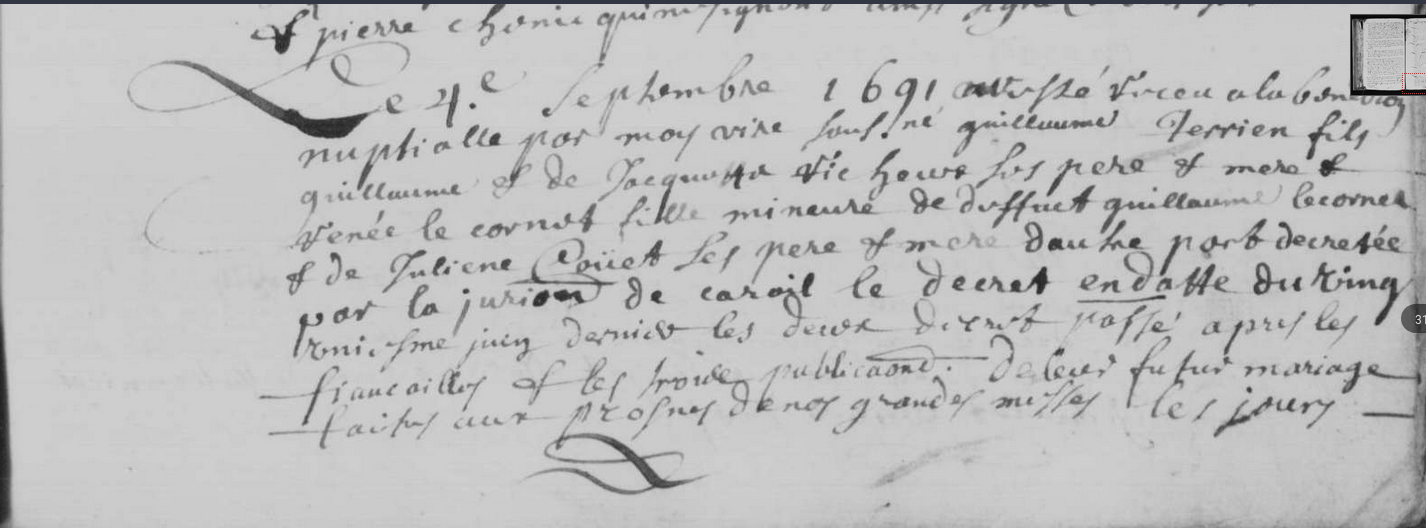 & pierre chenic qui ne signent
Le 4.e Septembre 1691 ont esté receu a la benedion
nuptialle par moy vire sous.né guillaume Terrien fils
guillaume & de Jacquette Vicheure ses pere & mere &
renée le cornet fille mineure de deffunt guillaume lecornet
& de Juliene Coüet ses pere & mere dautre part decretée
par la jurion de caroil le decret endatte du ving
troiesme juin dernier les deux passé apres les
fiancailles & les trois publicaons. de leur futur mariage
faites aux prosnes de nos grandes messes les jours